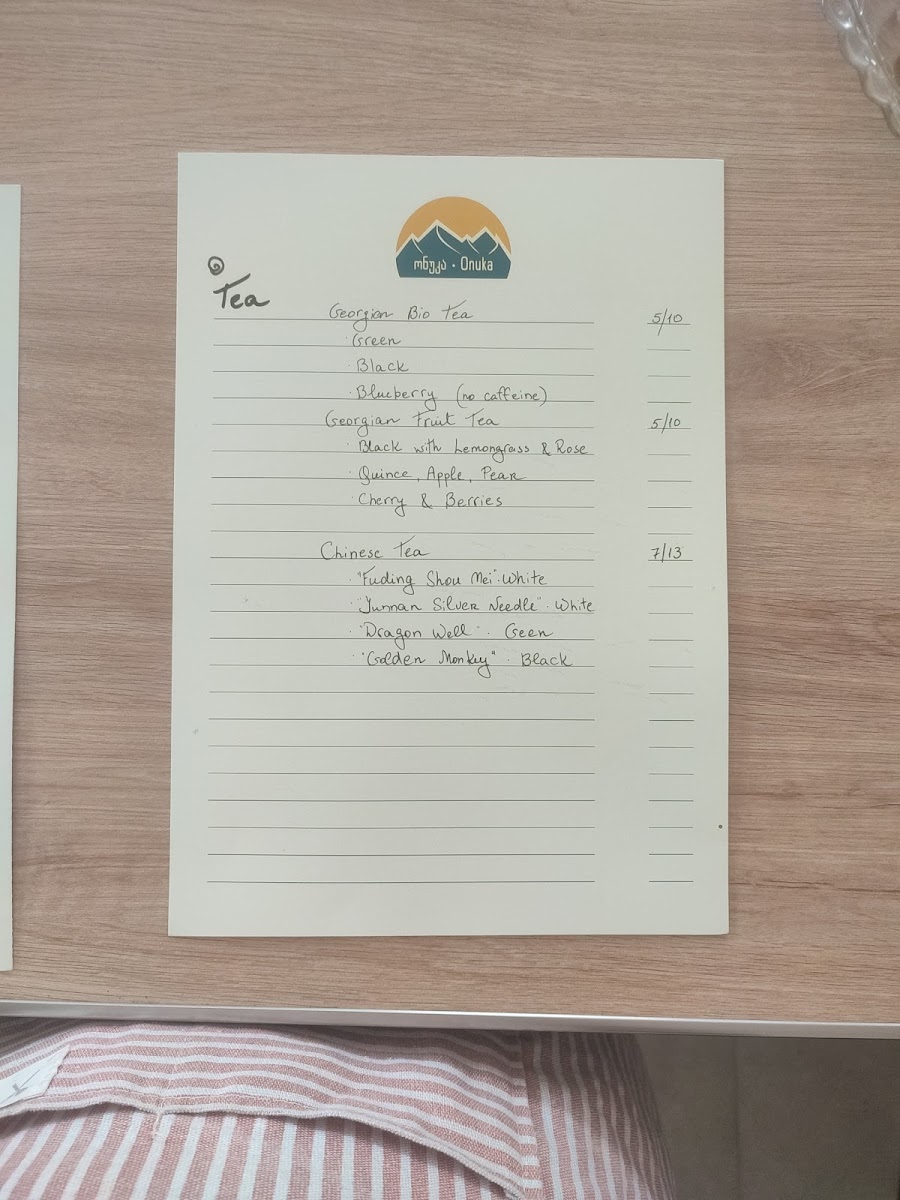 ონუკა · Onuka
Tea
Georgian Bio Tea 5/10
· Green
· Black
· Blueberry (no caffeine)
Georgian Fruit Tea 5/10
· Black with Lemongrass & Rose
· Quince, Apple, Pear
· Cherry & Berries
Chinese Tea 7/13
· "Fuding Shou Mei" · White
· "Junnan Silver Needle" · White
· "Dragon Well" · Geen
· "Golden Monkey" · Black